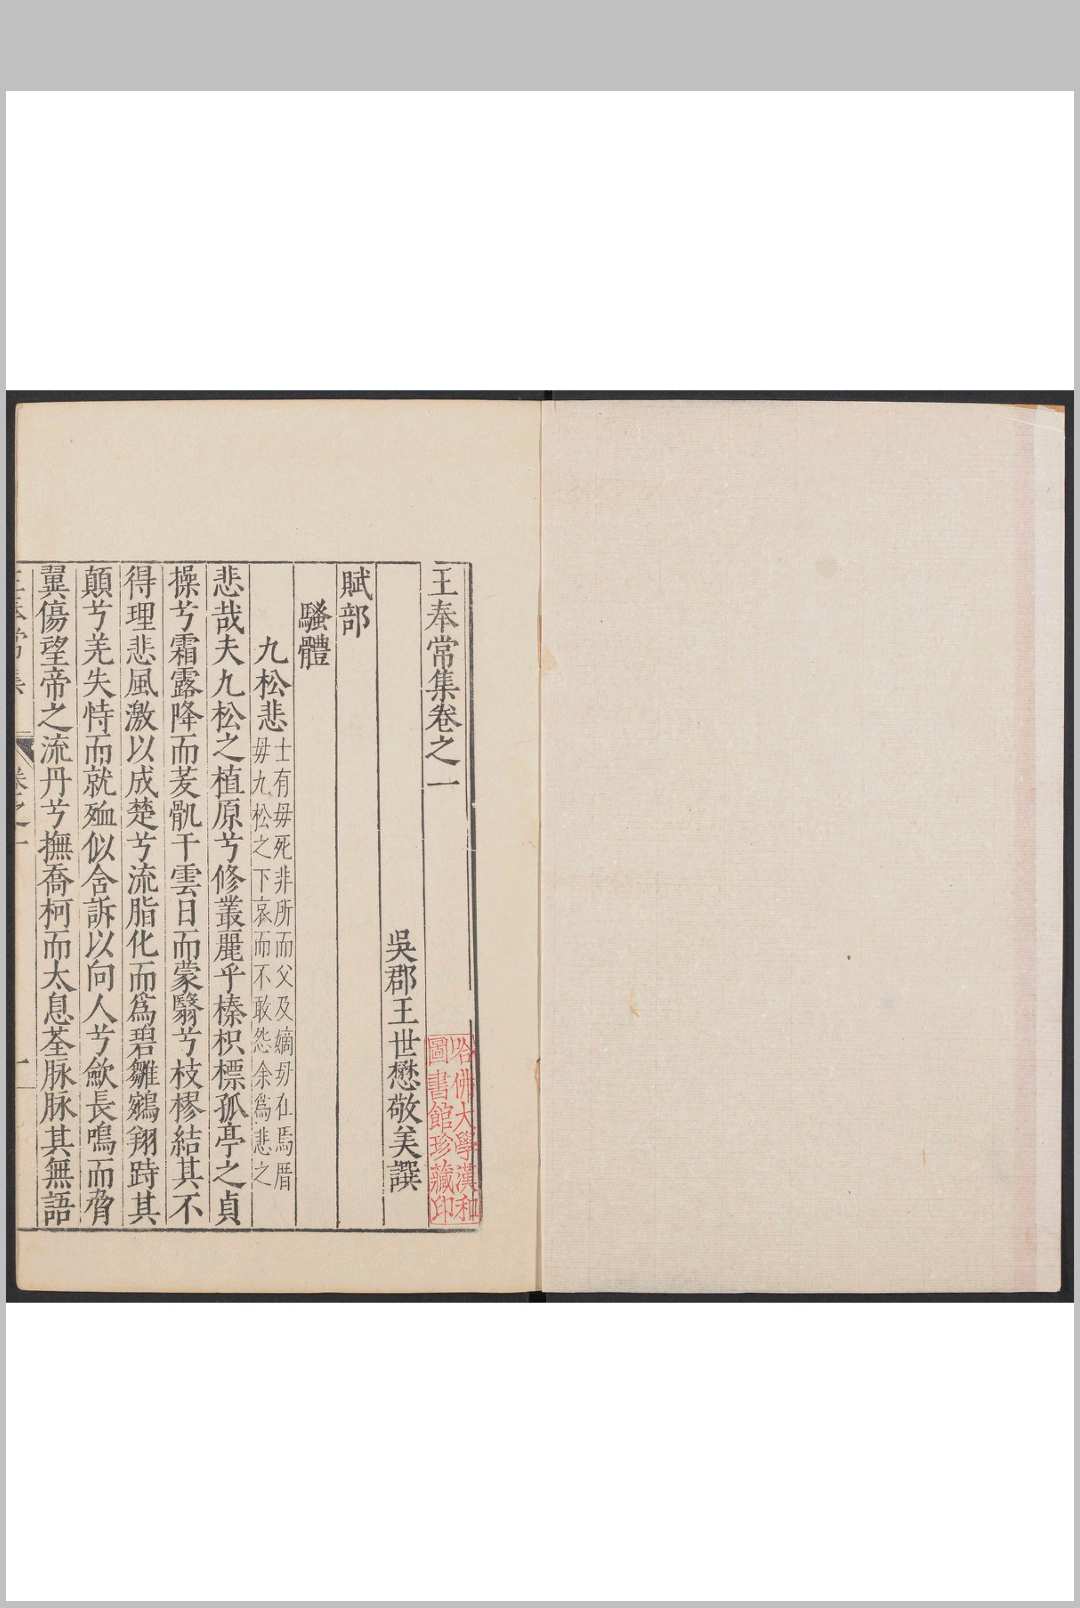 王奉常集卷之一
吳郡王世懋敬美譔
哈佛大學漢和
圖書館珍藏印
賦部
騷體
九松悲
士有毋死非所而父及嫡毋在焉厝
毋九松之下哀而不敢怨余為悲之
悲哉夫九松之植原兮修叢麗乎榛枳標孤亭之貞
操兮霜露降而茇骩干雲日而蒙翳兮枝樛結其不
得理悲風激以成楚兮流脂化而爲碧雛鵷翔跱其
顛兮羌失恃而就殈似含訴以向人兮歙長鳴而脅
翼傷望帝之流丹兮撫喬柯而太息荃脉脉其無語
王奉常集
卷之一
一